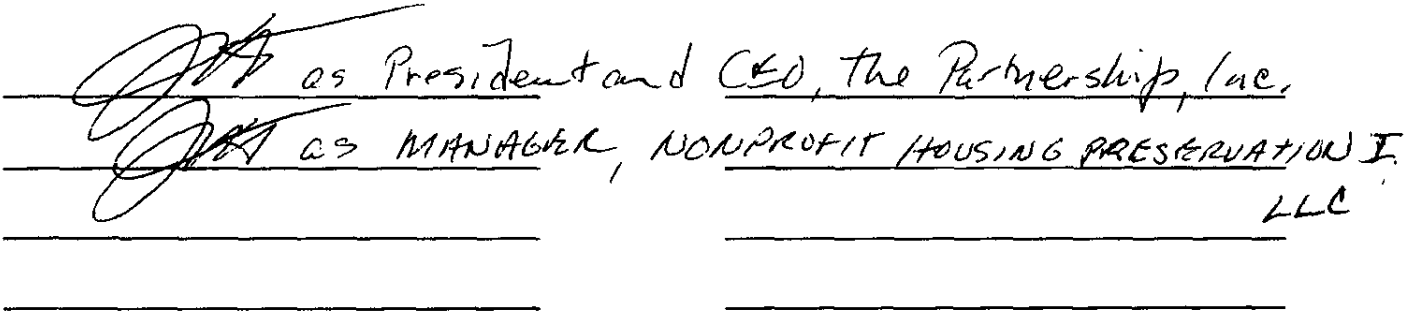 as President and CEO, The Partnership, Inc.
as MANAGER, NONPROFIT HOUSING PRESERVATION I.
LLC